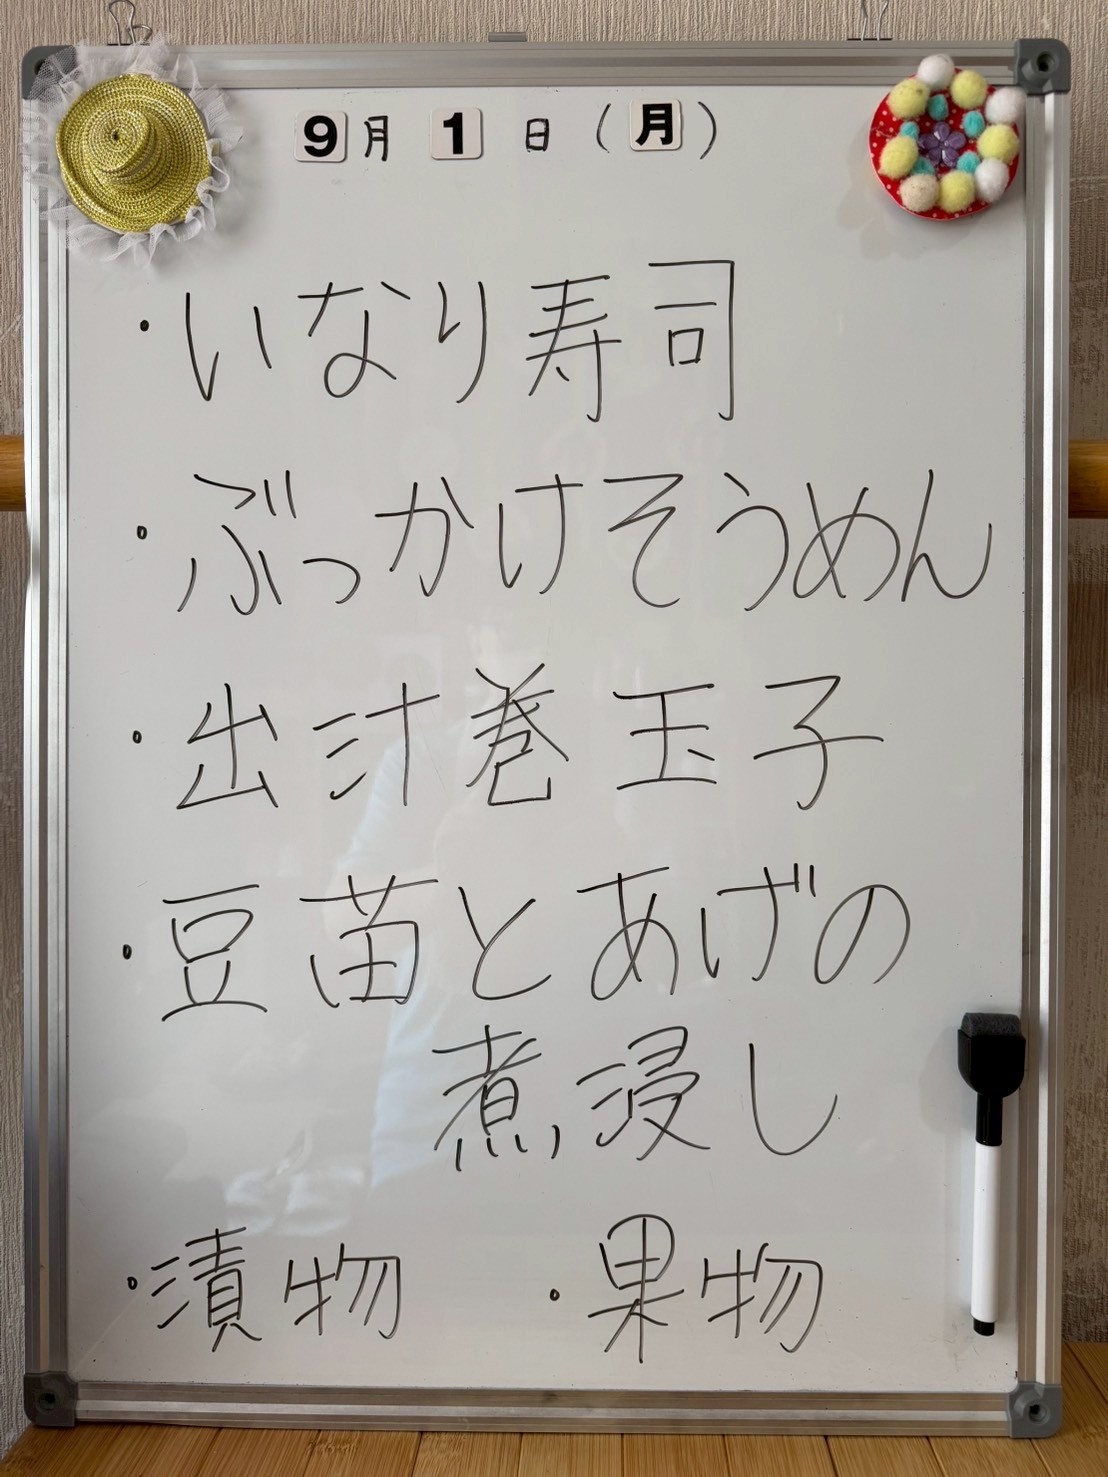 9月1日(月)
・いなり寿司
・ぶっかけそうめん
・出汁巻玉子
・豆苗とあげの
煮浸し
・漬物 ・果物